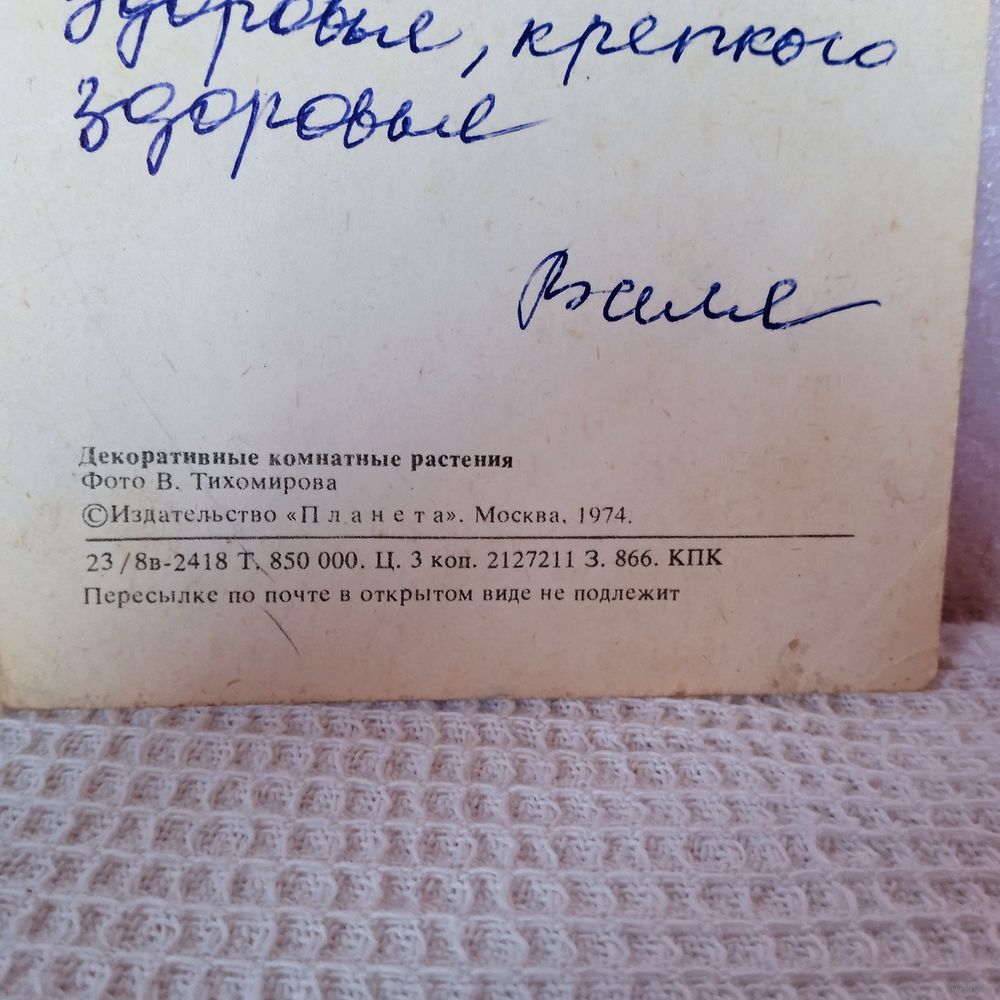 здоровье, крепкого
здоровье
Валя
Декоративные комнатные растения
Фото В. Тихомирова
©Издательство «Планета». Москва, 1974.
23/8в-2418 Т. 850 000. Ц. 3 коп. 2127211 З. 866. КПК
Пересылке по почте в открытом виде не подлежит